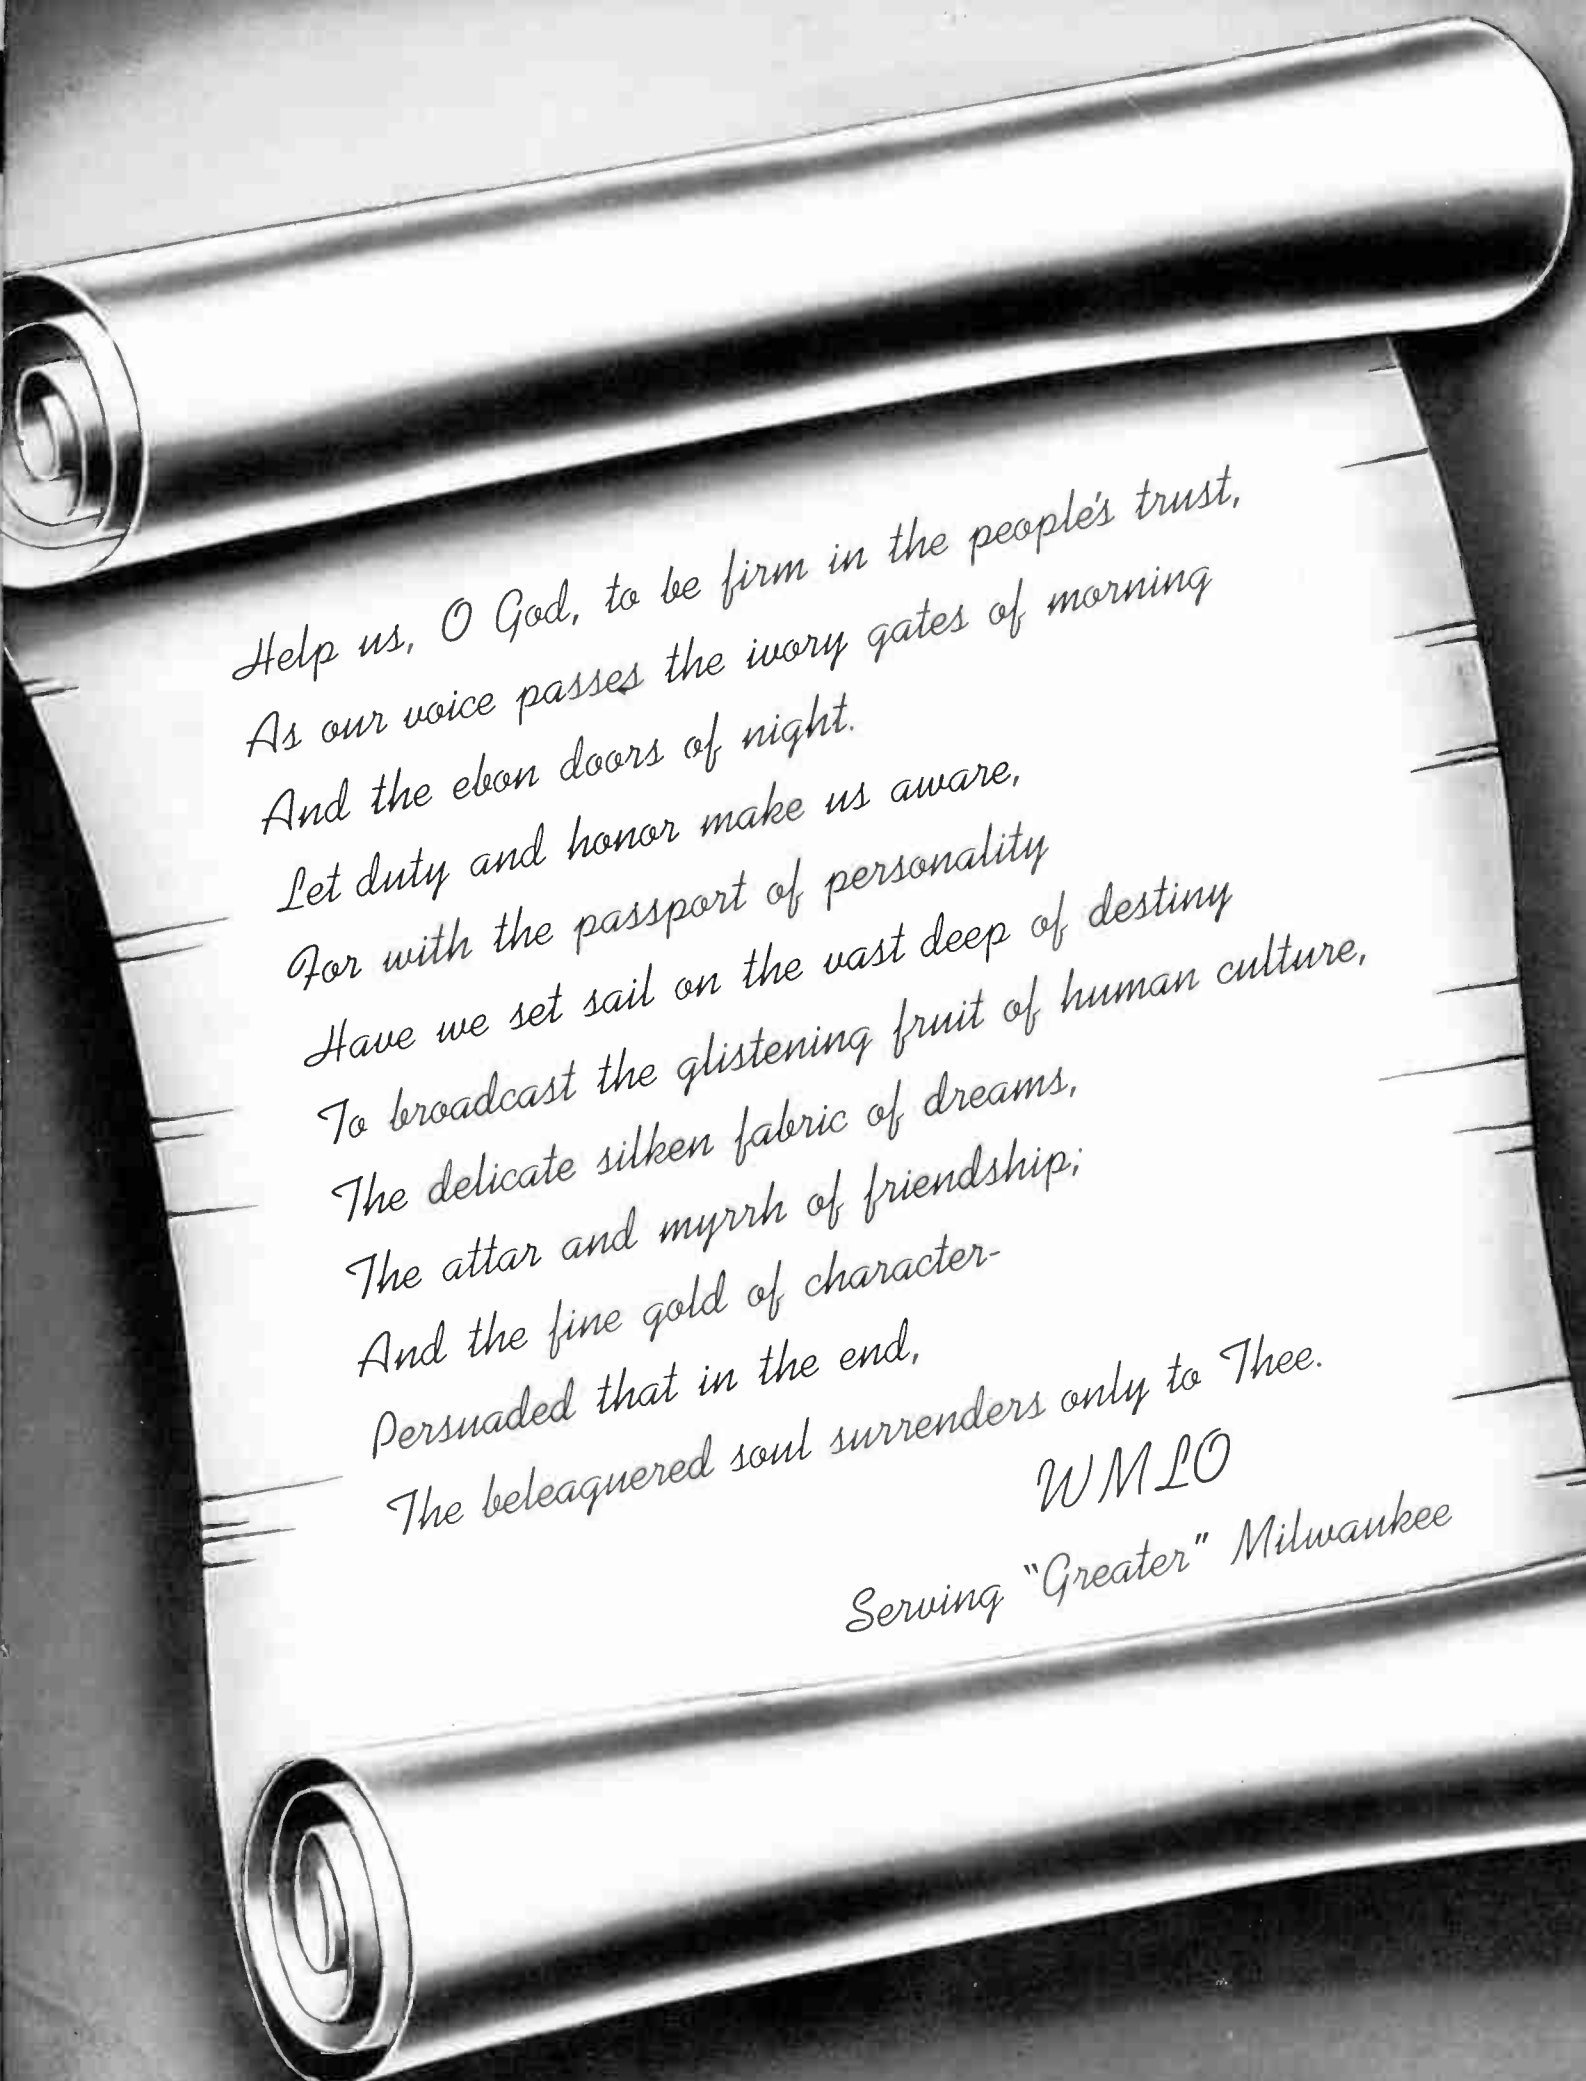 Help us, O God, to be firm in the people's trust,
As our voice passes the ivory gates of morning
And the ebon doors of night.
Let duty and honor make us aware,
For with the passport of personality
Have we set sail on the vast deep of destiny
To broadcast the glistening fruit of human culture,
The delicate silken fabric of dreams,
The attar and myrrh of friendship;
And the fine gold of character-
Persuaded that in the end,
The beleaguered soul surrenders only to Thee.
WMLO
Serving "Greater" Milwaukee